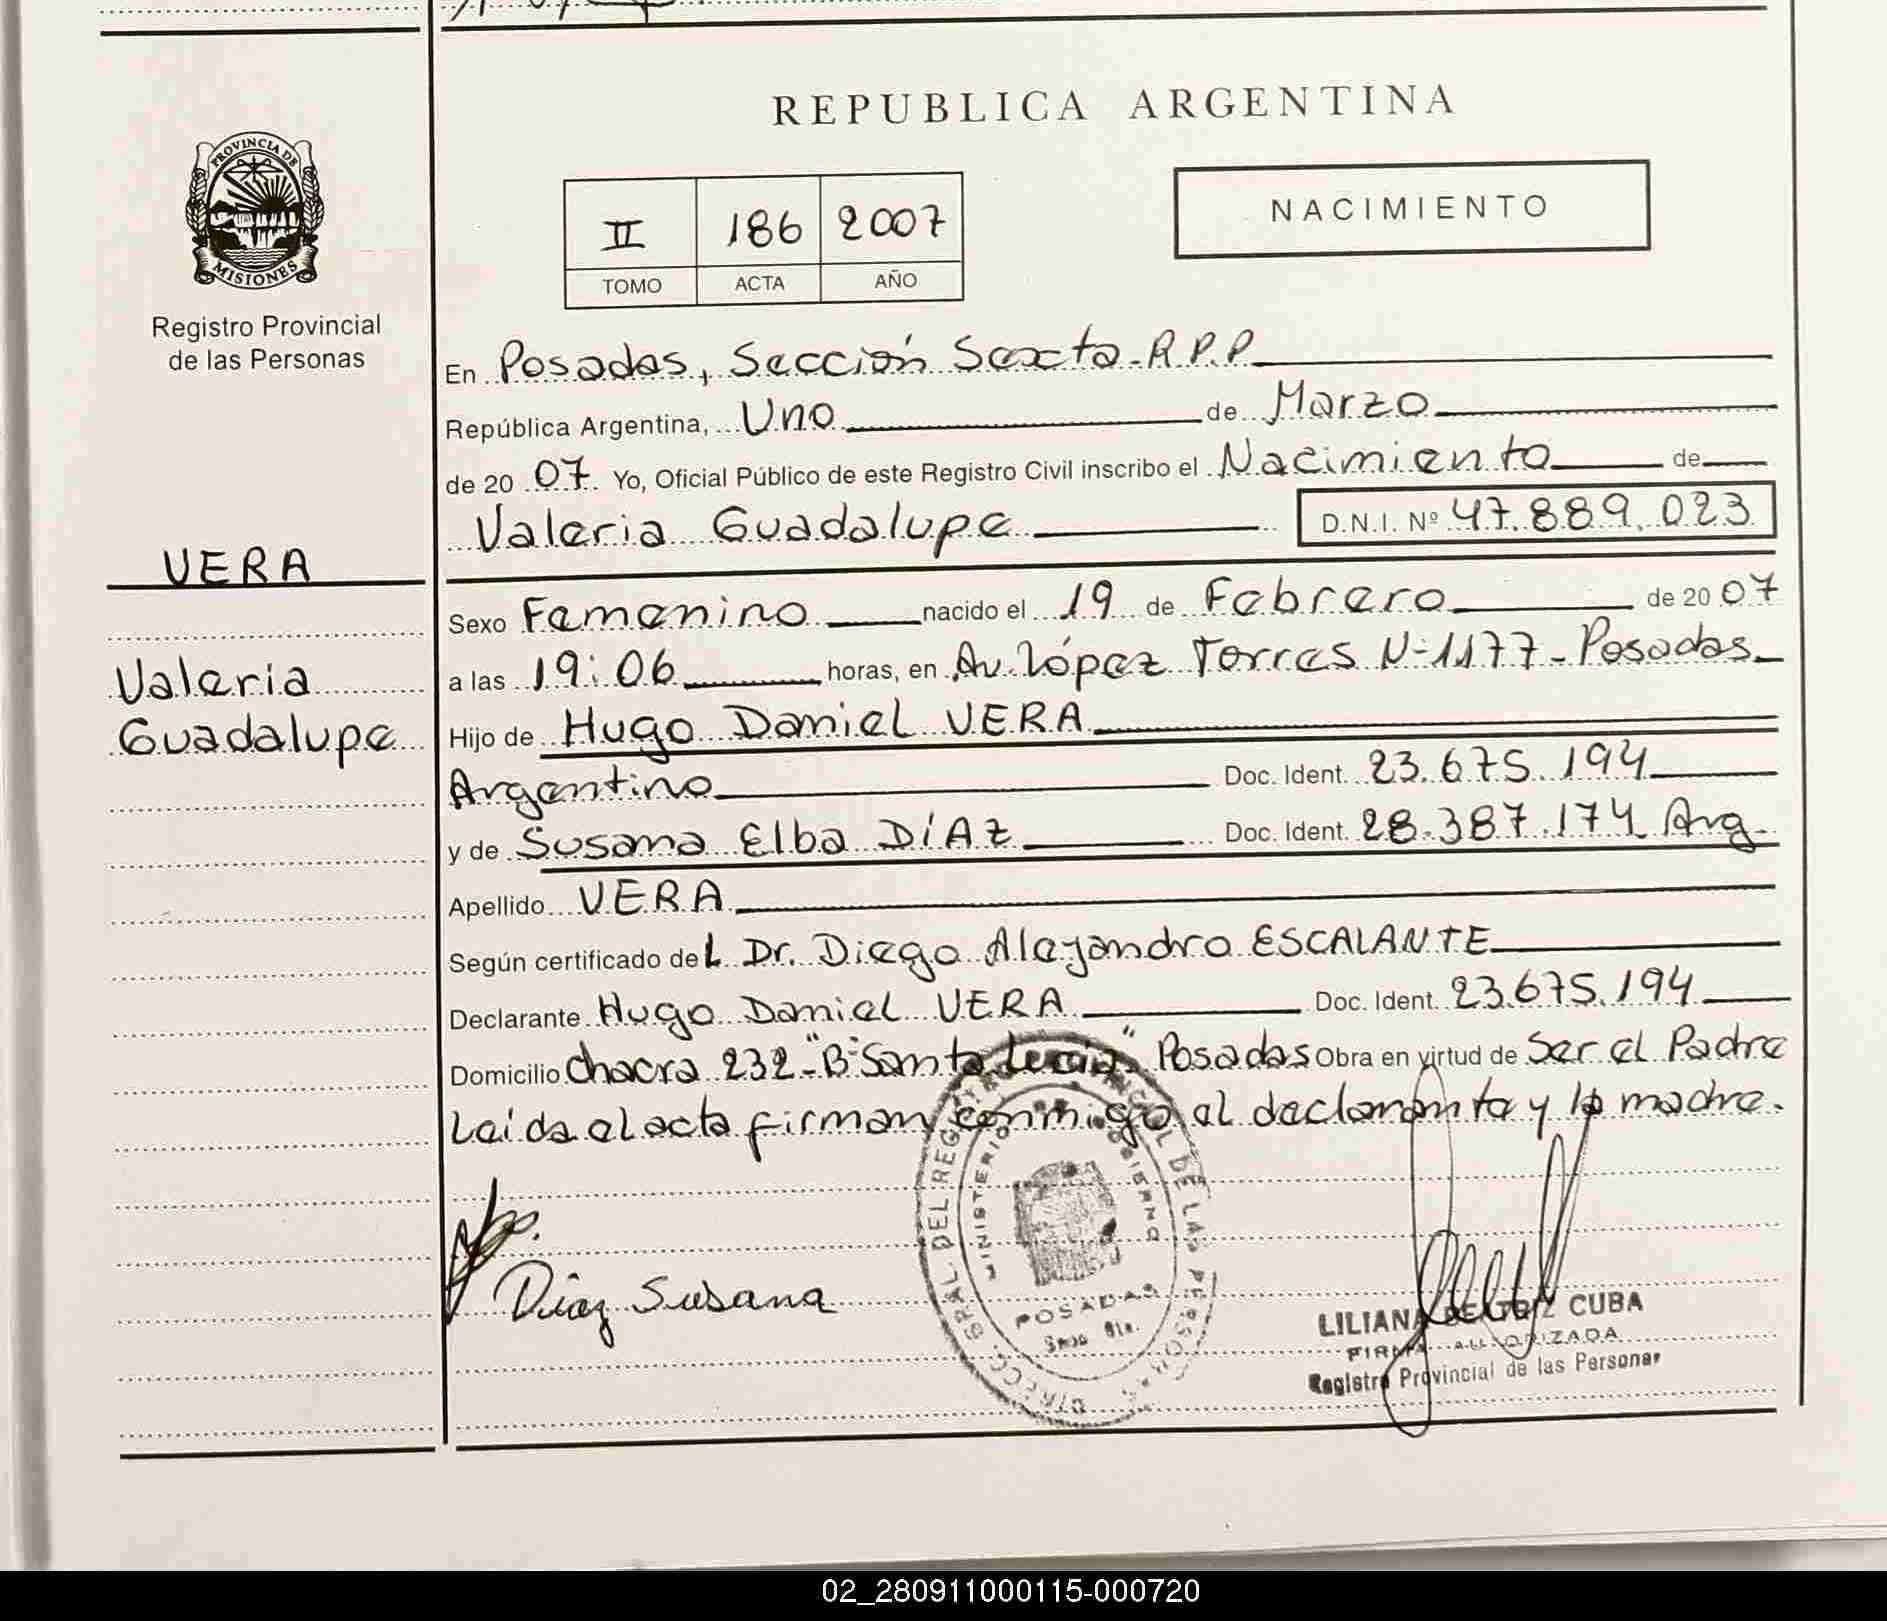 REPUBLICA ARGENTINA
PROVINCIA DE
MISIONES
Registro Provincial
de las Personas
II 186 2007
TOMO ACTA AÑO
NACIMIENTO
En Posadas, Sección Sexta-R.P.P.
República Argentina, Uno de Marzo
de 20 07 Yo, Oficial Público de este Registro Civil inscribo el Nacimiento de
Valeria Guadalupe D.N.I. Nº 47.889.023
VERA
Valeria
Guadalupe
Sexo Femenino nacido el 19 de Febrero de 20 07
a las 19:06 horas, en Av. López Torres N-1177-Posadas-
Hijo de Hugo Daniel VERA
Argentino Doc. Ident. 23.675.194
y de Susana Elba DÍAZ Doc. Ident. 28.387.174 Arg.
Apellido VERA
Según certificado del Dr. Diego Alejandro ESCALANTE
Declarante Hugo Daniel VERA Doc. Ident. 23.675.194
Domicilio Chacra 232-"Bº Santa Lucía" Posadas Obra en virtud de Ser el Padre
Leída el acta firman conmigo el declarante y la madre.
Diaz Susana
DIRECC. GRAL DEL REGISTRO PROVINCIAL DE LAS PERSONAS
MINISTERIO DE GOBIERNO
POSADAS
LILIANA BEATRIZ CUBA
FIRMA AUTORIZADA
Registro Provincial de las Personas
02_280911000115-000720